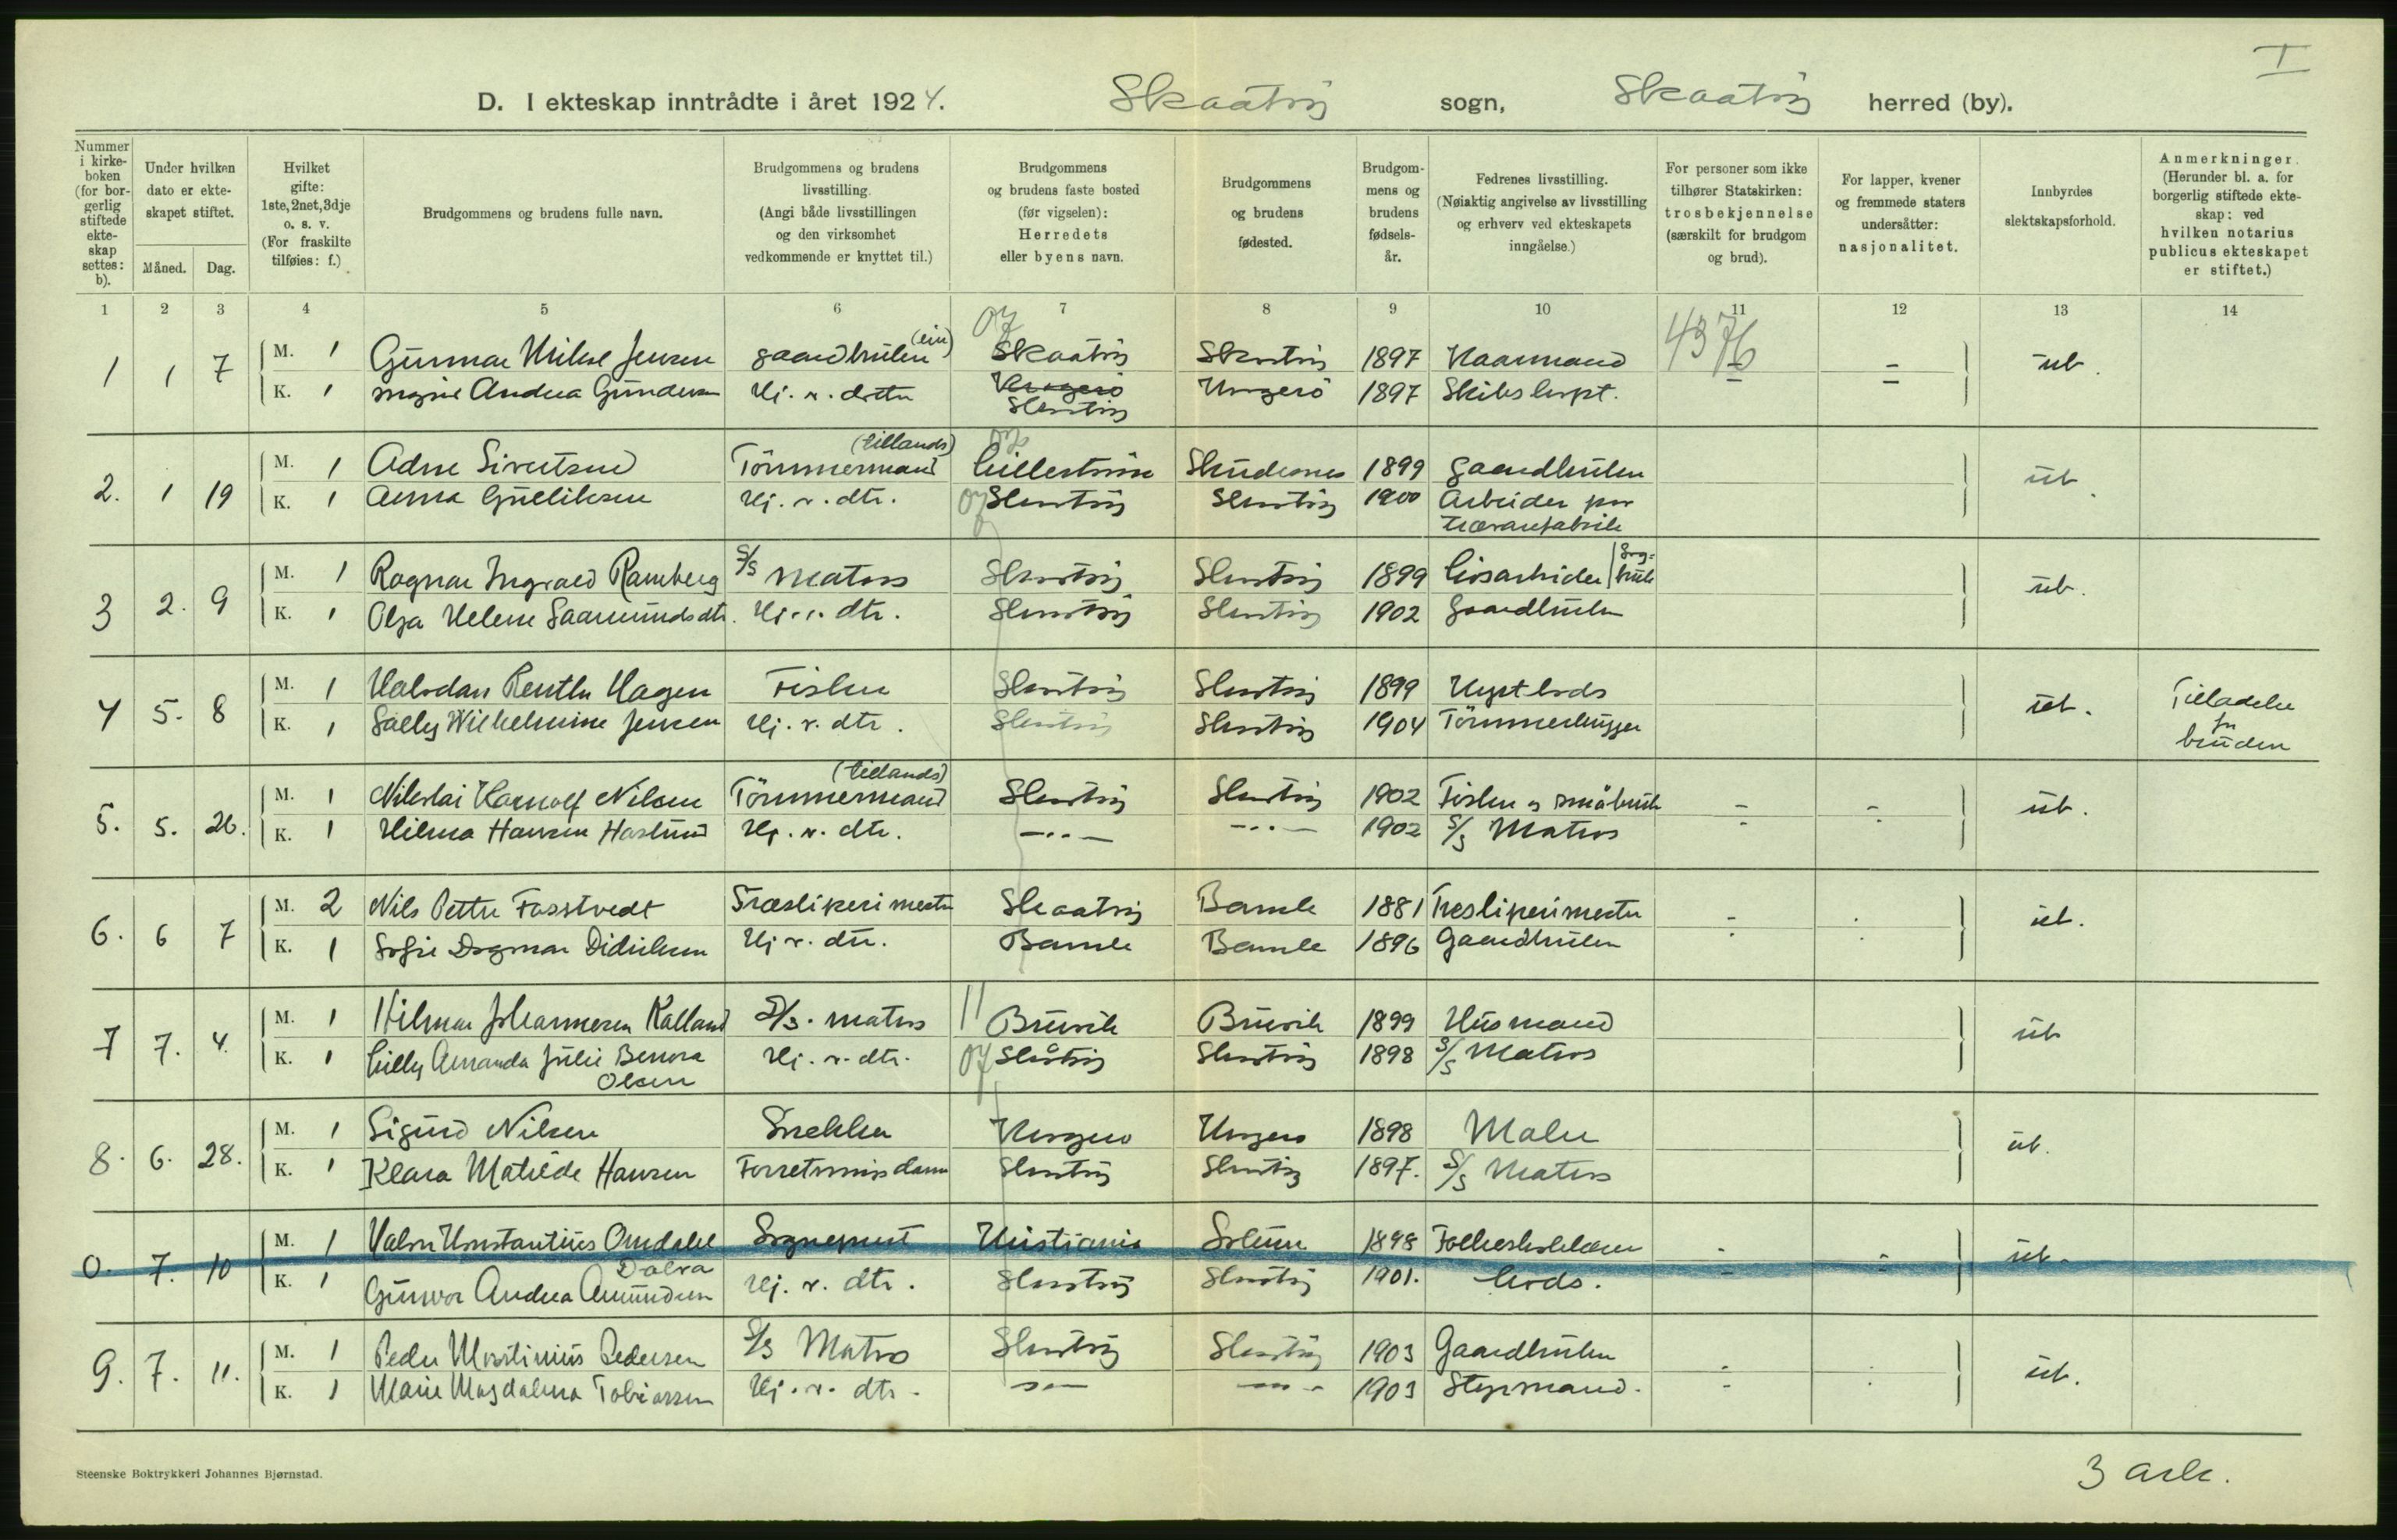 I
D. I ekteskap inntrådte i året 1924. Skaatøy sogn, Skaatøy herred (by).
Nummer i kirkeboken (for borgerlig stiftede ekteskap settes: b).
Under hvilken dato er ekteskapet stiftet.
Måned. Dag.
Hvilket gifte: 1ste, 2net, 3dje o. s. v. (For fraskilte tilføies: f.)
Brudgommens og brudens fulle navn.
Brudgommens og brudens livsstilling. (Angi både livsstillingen og den virksomhet vedkommende er knyttet til.)
Brudgommens og brudens faste bosted (før vigselen): Herredets eller byens navn.
Brudgommens og brudens fødested.
Brudgommens og brudens fødselsår.
Fedrenes livsstilling. (Nøiaktig angivelse av livsstilling og erhverv ved ekteskapets inngåelse.)
For personer som ikke tilhører Statskirken: trosbekjennelse (særskilt for brudgom og brud).
For lapper, kvener og fremmede staters undersåtter: nasjonalitet.
Innbyrdes slektskapsforhold.
Anmerkninger. (Herunder bl. a. for borgerlig stiftede ekteskap: ved hvilken notarius publicus ekteskapet er stiftet.)
1 2 3 4 5 6 7 8 9 10 11 12 13 14
07 4376
1 1 7 M. 1 Gunnar Mikal Jensen gaardbruker (ein) Skaatøy Skaatøy 1897 Havnmand ub.
K. 1 Andrea Gundersen Hj. v. dotter Kragerö Skaatøy Kragerö 1897 Skibskapt.
2. 1 19 M. 1 Adne Sivertsen Tömmermand (tillands) Lilleström Skudesnes 1899 gaardbruker ub.
K. 1 Anna Gulliksen Hj. v. dtr. 07 Skaatøy Skaatøy 1900 Arbeider paa trævarefabrik
3 2. 9 M. 1 Ragnar Ingvald Ramberg S/S matros Skaatøy Skaatøy 1899 ub.
K. 1 Olga Helene Gaamundsdtr. Hj. v. dtr. Skaatøy Skaatøy 1902 Gaardbruker
4 5. 8 M. 1 Halvdan Hagen Fisker Skaatøy Skaatøy 1899 ub. Tilladelse for bruden
K. 1 Sally Wilhelmine Jensen Hj. v. dtr. Skaatøy Skaatøy 1904 Tömmerhugger
5. 5. 26. M. 1 Nikolai Harnolf Nilsen Tömmermand (tillands) Skaatøy Skaatøy 1902 Fisker og småbruk ub.
K. 1 Hilma Hansen Haslund Hj. v. dtr. -..- -..- 1902 S/S Matros
6. 6 7 M. 2 Nils Petter Fosstvedt Træsliperimester Skaatøy Bamle 1881 Tresliperimester ub.
K. 1 Sofie Dagmar Didriksen Hj. v. dtr. Bamle Bamle 1896 Gaardbruker
7 7. 4. M. 1 Hilmar Johannesen Kalland S/S. matros 11 Bruvik Bruvik 1899 Husmand ub
K. 1 Lilly Amanda Julie Benora Olsen Hj. v. dtr. 07 Skåtøy Skaatøy 1898 S/S Matros
8. 6. 28. M. 1 Sigurd Nilsen Snekker Kragerö Kragerö 1898 Maler ub.
K. 1 Klara Matilde Hansen Forretningsdame Skaatøy Skaatøy 1897. S/S Matros
0. 7. 10 M. 1 Konstantius Omdahl Sogneprest Kristiania Solum 1898 Folkeskolelærer ub.
K. 1 Gunvor Andrea Dalva Amundsen Hj. v. dtr. Skaatøy Skaatøy 1901. Lods.
9. 7. 11. M. 1 Peder Martinius Pedersen S/S Matros Skaatøy Skaatøy 1903 Gaardbruker ub.
K. 1 Marie Magdalena Tobiassen Hj. v. dtr. -..- -..- 1903 Styrmand.
Steenske Boktrykkeri Johannes Bjørnstad.
3 ark.